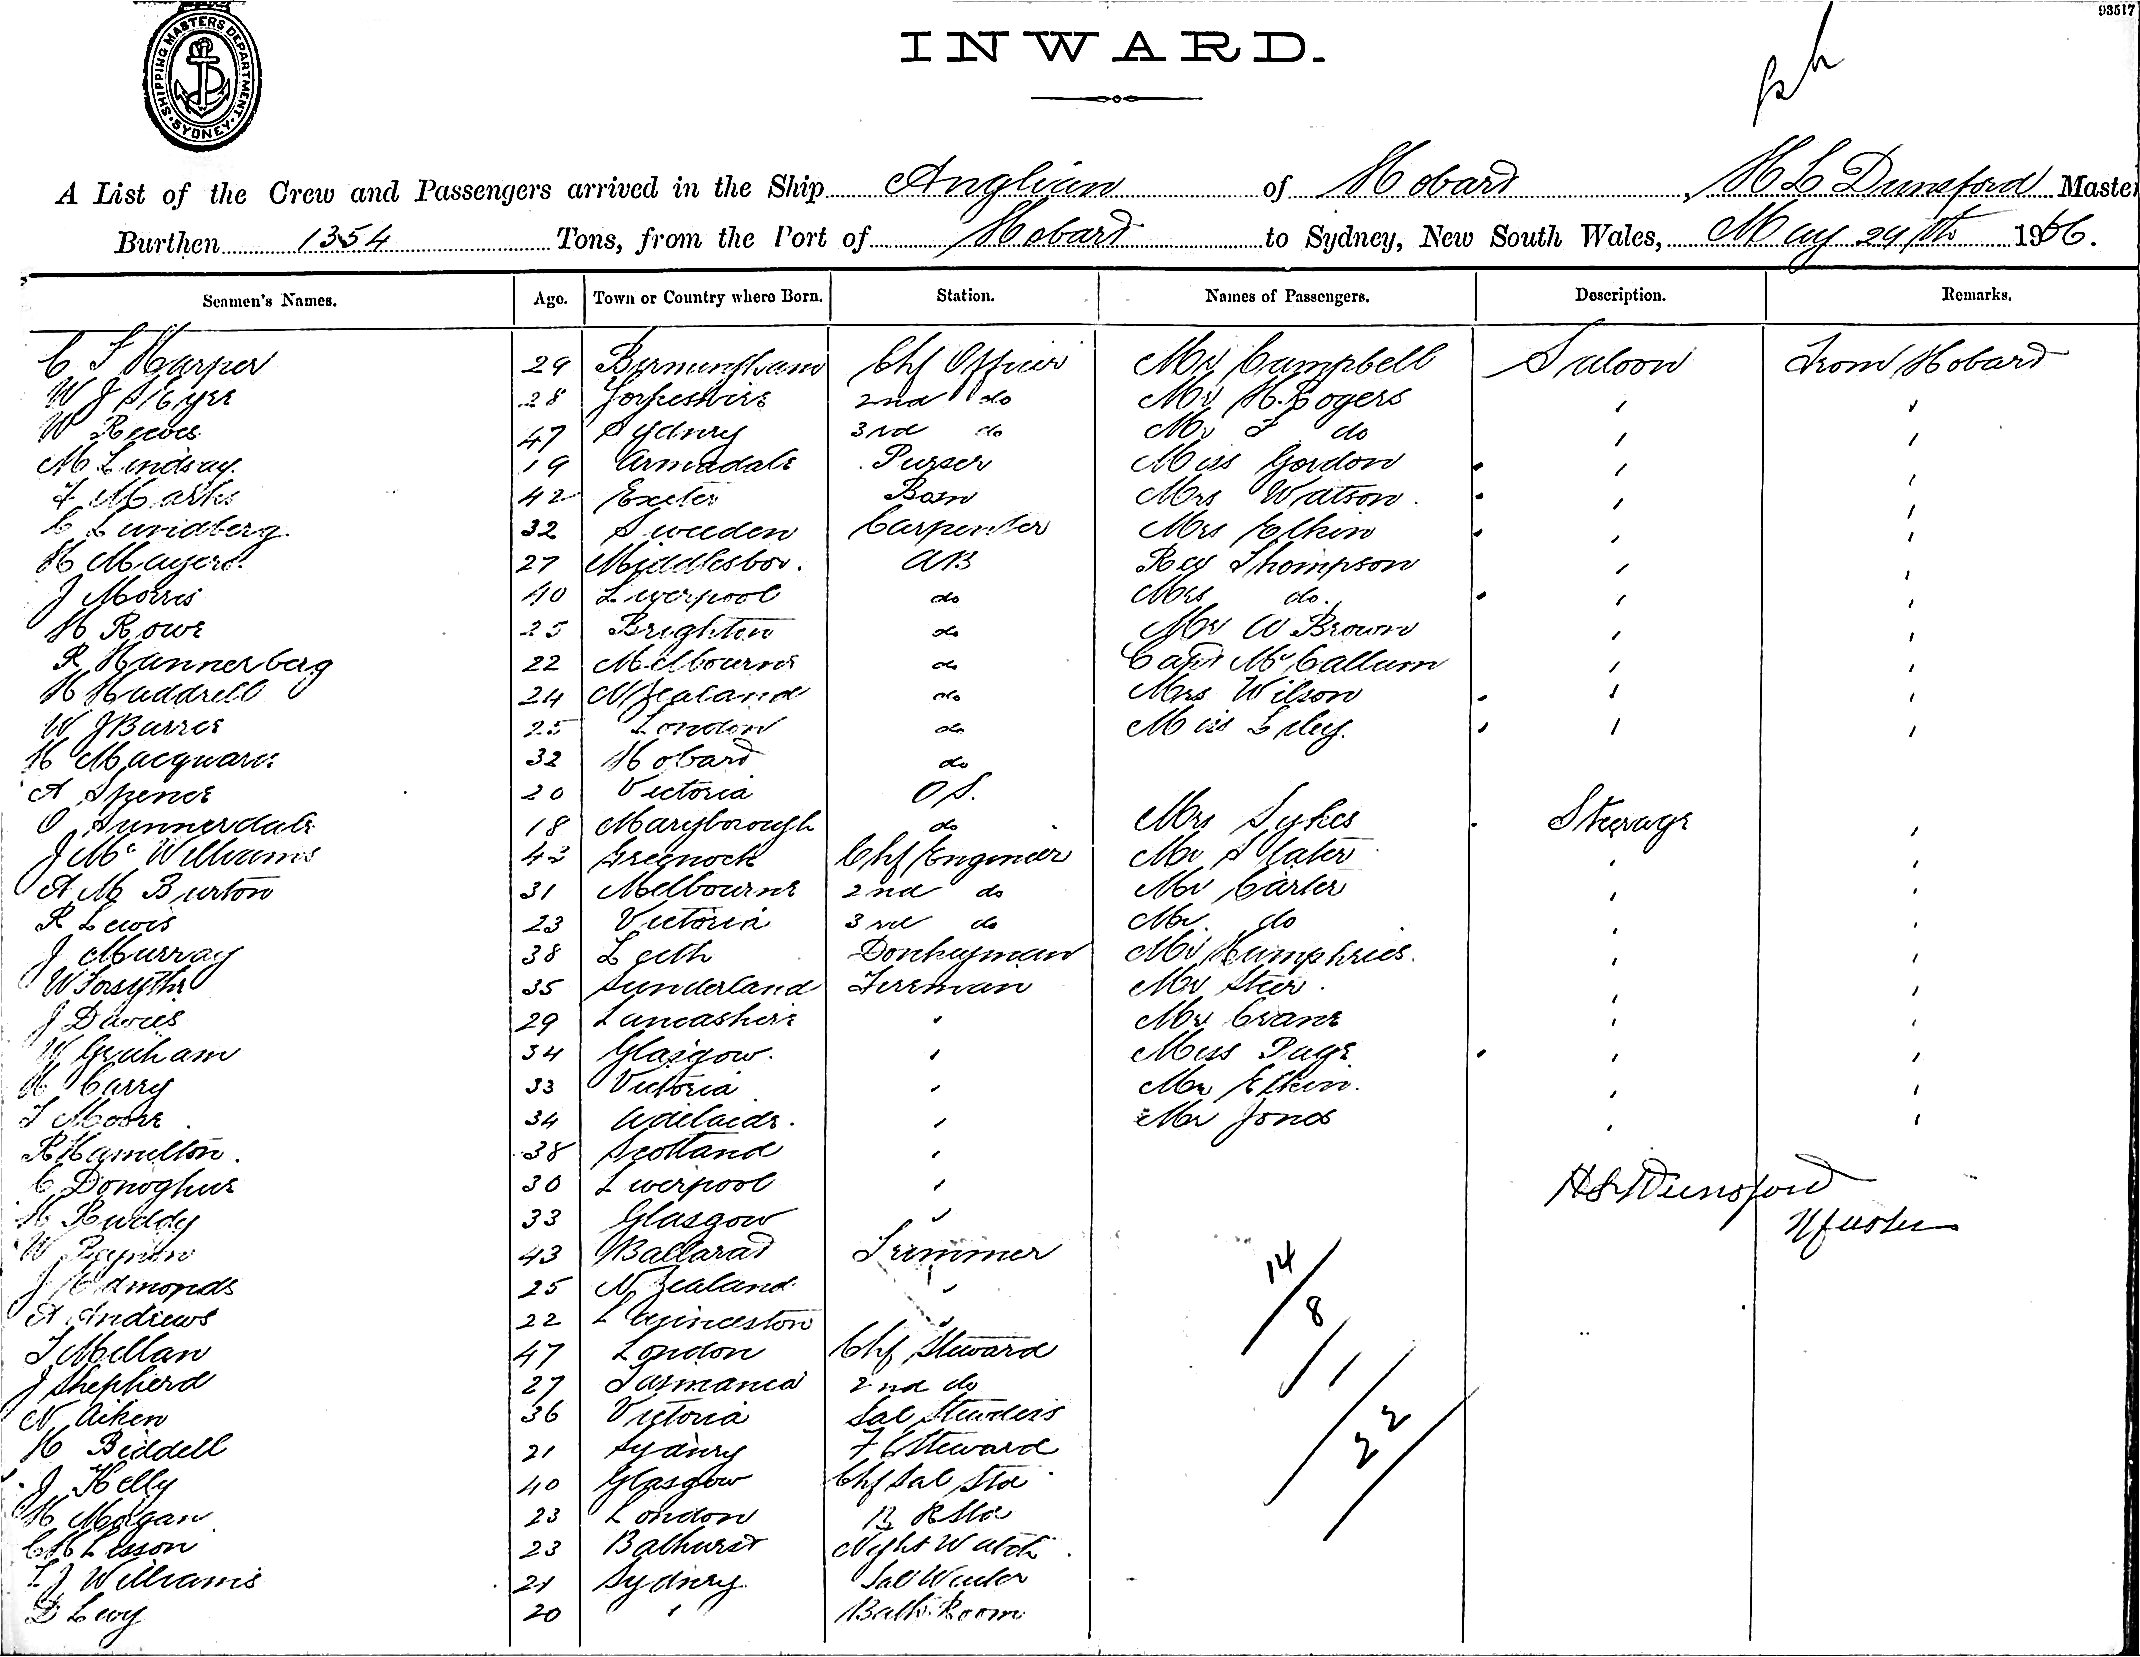 93517
SHIPPING MASTERS DEPARTMENT. SYDNEY.
INWARD.
A List of the Crew and Passengers arrived in the Ship Anglian of Hobard, H L Dunsford Master
Burthen 1354 Tons, from the Port of Hobard to Sydney, New South Wales, May 24th 1906.
Seamen's Names. Age. Town or Country where Born. Station. Names of Passengers. Description. Remarks.
C Harper 29 Birmingham Chf Officer Mr Campbell Saloon From Hobard
W J 28 Yorkeshire 2nd do Mr H. Rogers
W Reeves 47 Sydney 3rd do Mr F do
M Lindsay. 19 Armadale Purser Miss Gordon
F Marks 42 Exeter Bosn Mrs Watson.
C Lundberg. 32 Sweeden Carpenter Mrs Elkin
H Mayers. 27 Middlesbor. AB Rev Thompson
J Morris 40 Liverpool do Mrs do.
H Rowe 25 Brighten do Mr W Brown
R Hannerberg 22 Melbourne do Capt McCallum
H Haddrell 24 N Zealand do Mrs Wilson
W J Barrie 25 London do Miss Liley.
H Macquarie 32 Hobard do
A Spence 20 Victoria O.S.
O Sunnerdale 18 Maryborough do Mrs Sykes Steerage
J Mc Williams 43 Greenock Chf Engineer Mr Slater
A M Burton 31 Melbourne 2nd do Mr Carter
R Lewis 23 Victoria 3rd do Mr. do
J Murray 38 Leith Donkeyman Mr Humphries.
W Forsythe 35 Sunderland Fireman Mr Steer.
J Davies 29 Lancashire Mr Crane
W Graham 34 Glasgow. Miss Page
H Carry 33 Victoria Mr Elkin.
T Moore 34 Adelaide. Mr Jones
R Hamilton. 38 Scotland
C Donoghue 30 Liverpool H L Dunsford
H Ruddy 33 Glasgow Master
W 43 Ballarat Trimmer 14
J Edmonds 25 N Zealand 8
A Andrews 22 Launceston
T Mellan 47 London Chf Steward 1
J Shepherd 27 Tasmania 2nd do
N Aiken 36 Victoria Sal Stewdess 22
H Biddell 21 Sydney F C Steward
J Kelly 40 Glasgow Chf Sal Std
H Morgan 23 London B R Std
C H Lisson 23 Bathurst Night Watch.
L J Williams 21 Sydney. Sal Waiter
D Levy 20 Bath Room